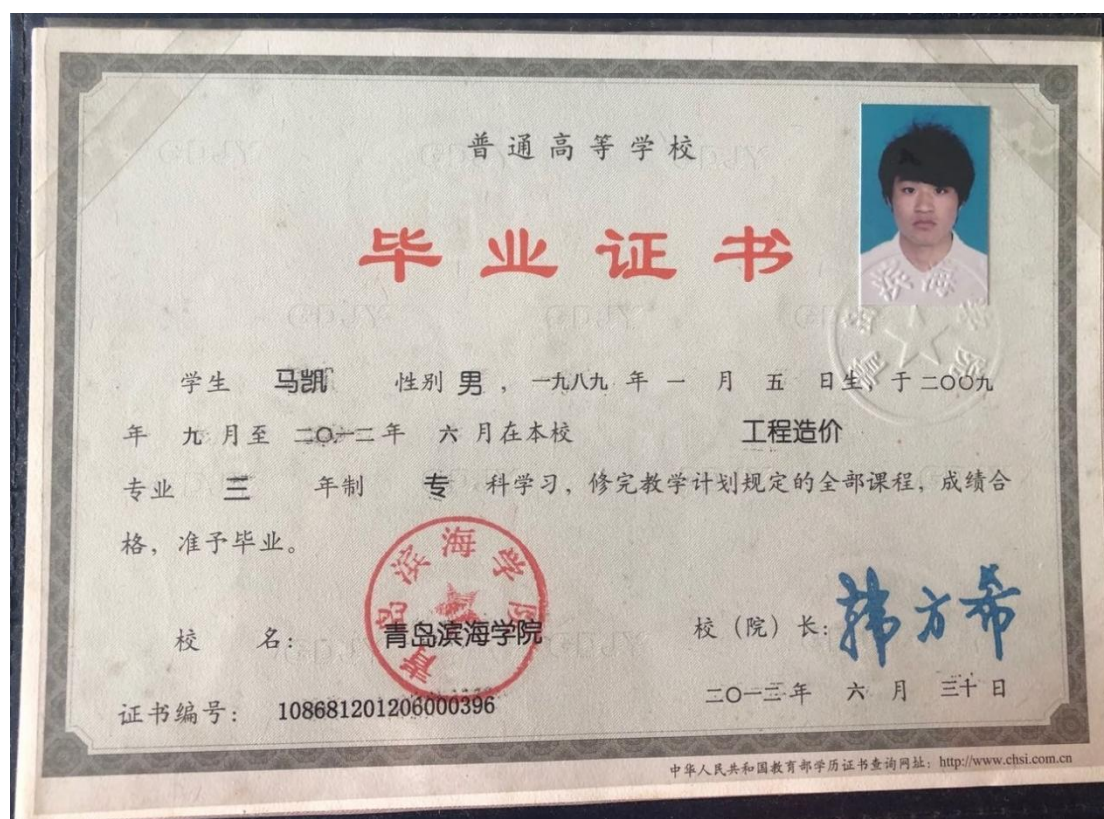 普通高等学校
毕业证书
学生 马凯 性别 男 ，一九八九 年 一 月 五 日生，于 二〇〇九
年 九 月至 二〇一二 年 六 月在本校 工程造价
专业 三 年制 专 科学习，修完教学计划规定的全部课程，成绩合
格，准予毕业。
校 名： 青岛滨海学院
校（院）长： 韩方希
二〇一二年 六 月 三十 日
证书编号： 108681201206000396
中华人民共和国教育部学历证书查询网址：http://www.chsi.com.cn
青岛滨海学院